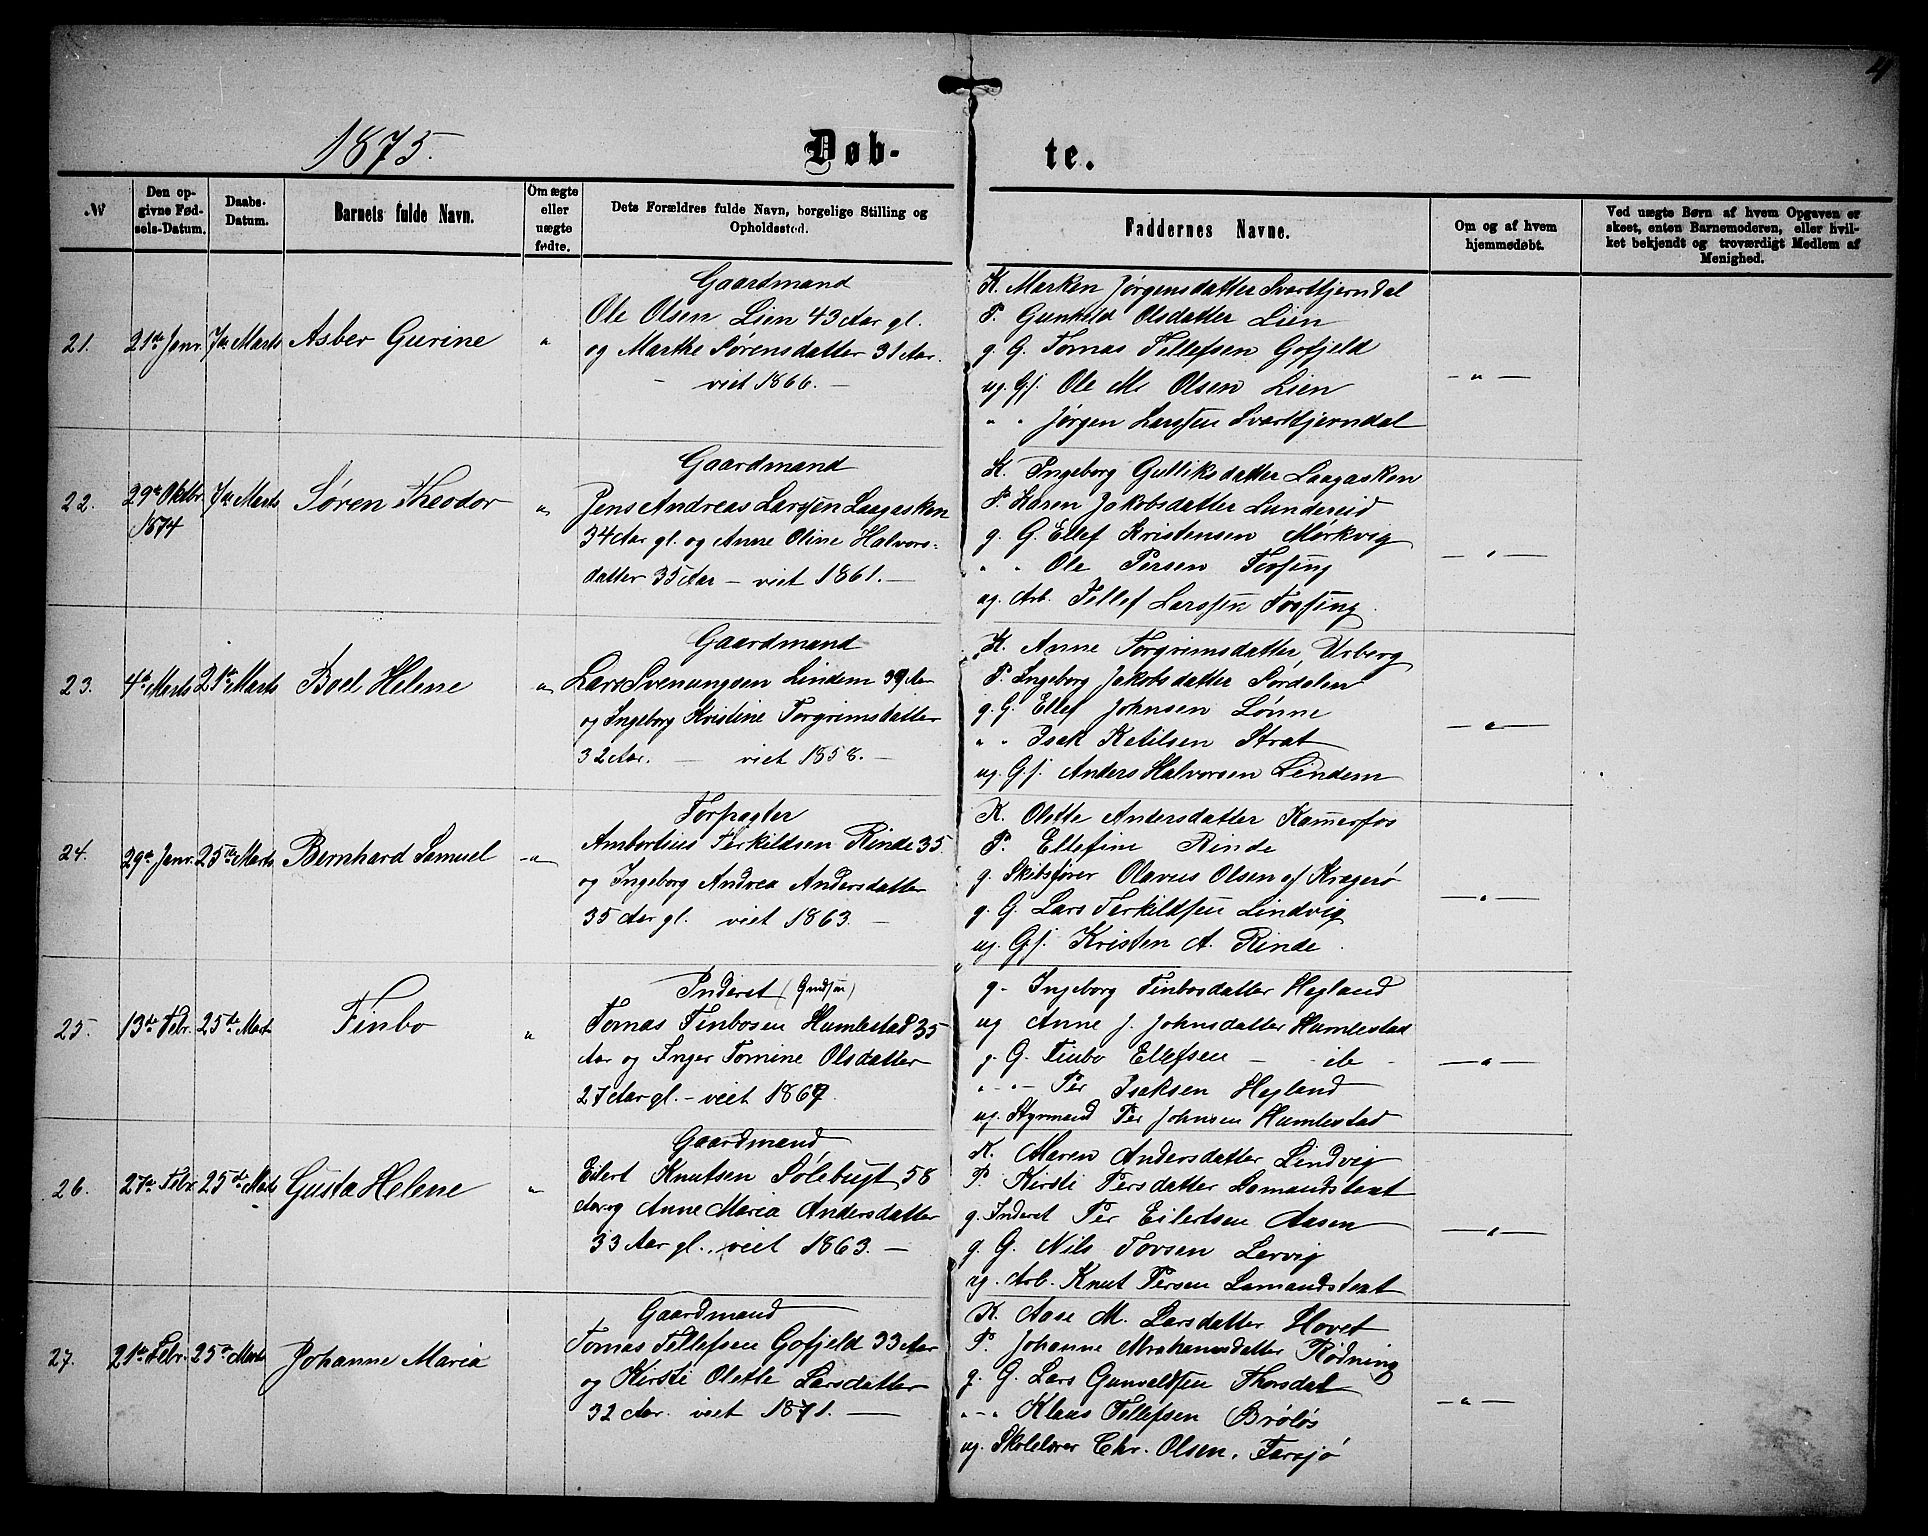 4
1875.
Døb-
te.
№
Den op-
givne Fød-
sels-Datum.
Daabs-
Datum.
Barnets fulde Navn.
Om ægte
eller
uægte
fødte.
Dets Forældres fulde Navn, borgelige Stilling og
Opholdssted.
Faddernes Navne.
Om og af hvem
hjemmedøbt.
Ved uægte Børn af hvem Opgaven er
skeet, enten Barnemoderen, eller hvil-
ket bekjendt og troværdigt Medlem af
Menighed.
21. 21de Janr. 7de Marts Asber Gurine "
Gaardmand
Ole Olsen Lien 43 Aar gl.
og Marthe Sørensdatter 31 Aar.
– viet 1866. –
K. Marken Jørgensdatter Svarttjerndal
P. Gunhild Olsdatter Lien
g. G. Tomas Tellefsen Gofjeld
ug. Gj. Ole M. Olsen Lien
" " Jørgen Larssen Svarttjerndal
– " –
22. 29de Oktbr. 1874 7de Marts Søren Theodor "
Gaardmand
Jens Andreas Larssen Laagasken
34 Aar gl. og Anne Oline Halvors-
datter 35 Aar – viet 1861. –
K. Ingeborg Gulliksdatter Laagasken
P. Karen Jakobsdatter Lundereid
g. G. Ellef Kristensen Mørkvig
" " Ole Persen Fossing
ug. Arb. Tellef Larssen Fossing.
– " –
23. 4de Marts 21de Marts Boel Helene "
Gaardmand
Lars Svenungsen Lindem 39 Aar
og Ingeborg Kristine Torgrimsdatter
32 Aar. – viet 1858. –
K. Anne Torgrimsdatter Urberg
P. Ingeborg Jakobsdatter Sørdalen
g. G. Ellef Johnsen Lønne
" " Isak Ketilsen Strat
ug. Gj. Anders Halvorsen Lindem
– " –
24. 29de Janr. 25de Marts Bernhard Samuel "
Forpagter
Ambortius Terkildsen Rinde 35.
og Ingeborg Andrea Andersdatter
35 Aar gl. viet 1863. –
K. Olette Andersdatter Kamerfos
P. Ellefine Rinde
g. Skibsfører Olavus Olsen af Kragerø
g. G. Lars Terkildsen Lindvig
ug. Gj. Kristen A. Rinde.
– " –
25. 13de Febr. 25de Marts Finbo "
Inderst (Gmdsøn)
Tomas Finbosen Humlestad 35
Aar og Inger Tomine Olsdatter
27 Aar gl. – viet 1867.
g. Ingeborg Finbosdatter Hegland
ug Anne J. Johnsdatter Humlestad
g. G. Finbo Ellefsen – ib –
" – " – Per Isaksen Hegland
ug. Styrmand Per Johnsen Humlestad
– " –
26. 27de Febr. 25de Marts Gusta Helene "
Gaardmand
Eilert Knutsen Sølebugt 58
Aar og Anne Maria Andersdatter
33 Aar gl. viet 1863. –
K. Maren Andersdatter Lindvig
P. Kirsti Persdatter Lomandstrat
g. Inderst Per Eilertsen Aasen
g. G. Nils Tovsen Lervig
ug. Arb. Knut Persen Lomandstrat
– " –
27. 21de Febr. 25de Marts Johanne Maria
Gaardmand
Tomas Tellefsen Gofjeld 33 Aar
og Kirsti Olette Larsdatter
32 Aar. viet 1871. –
K. Aase M. Larsdatter Hovet
P. Johanne Abrahamsdatter Rødning
g. G. Lars Gunvaldsen Thorsdal
" – " Klaus Tellefsen Brøløs
ug. Skolelærer Chr. Olsen, Farsjø
– " –